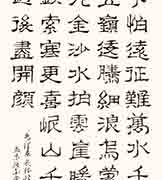 不怕遠征難萬水千
五嶺逶迤騰細浪
金沙水拍雲崖
索寒更喜岷山千
過後盡開顏